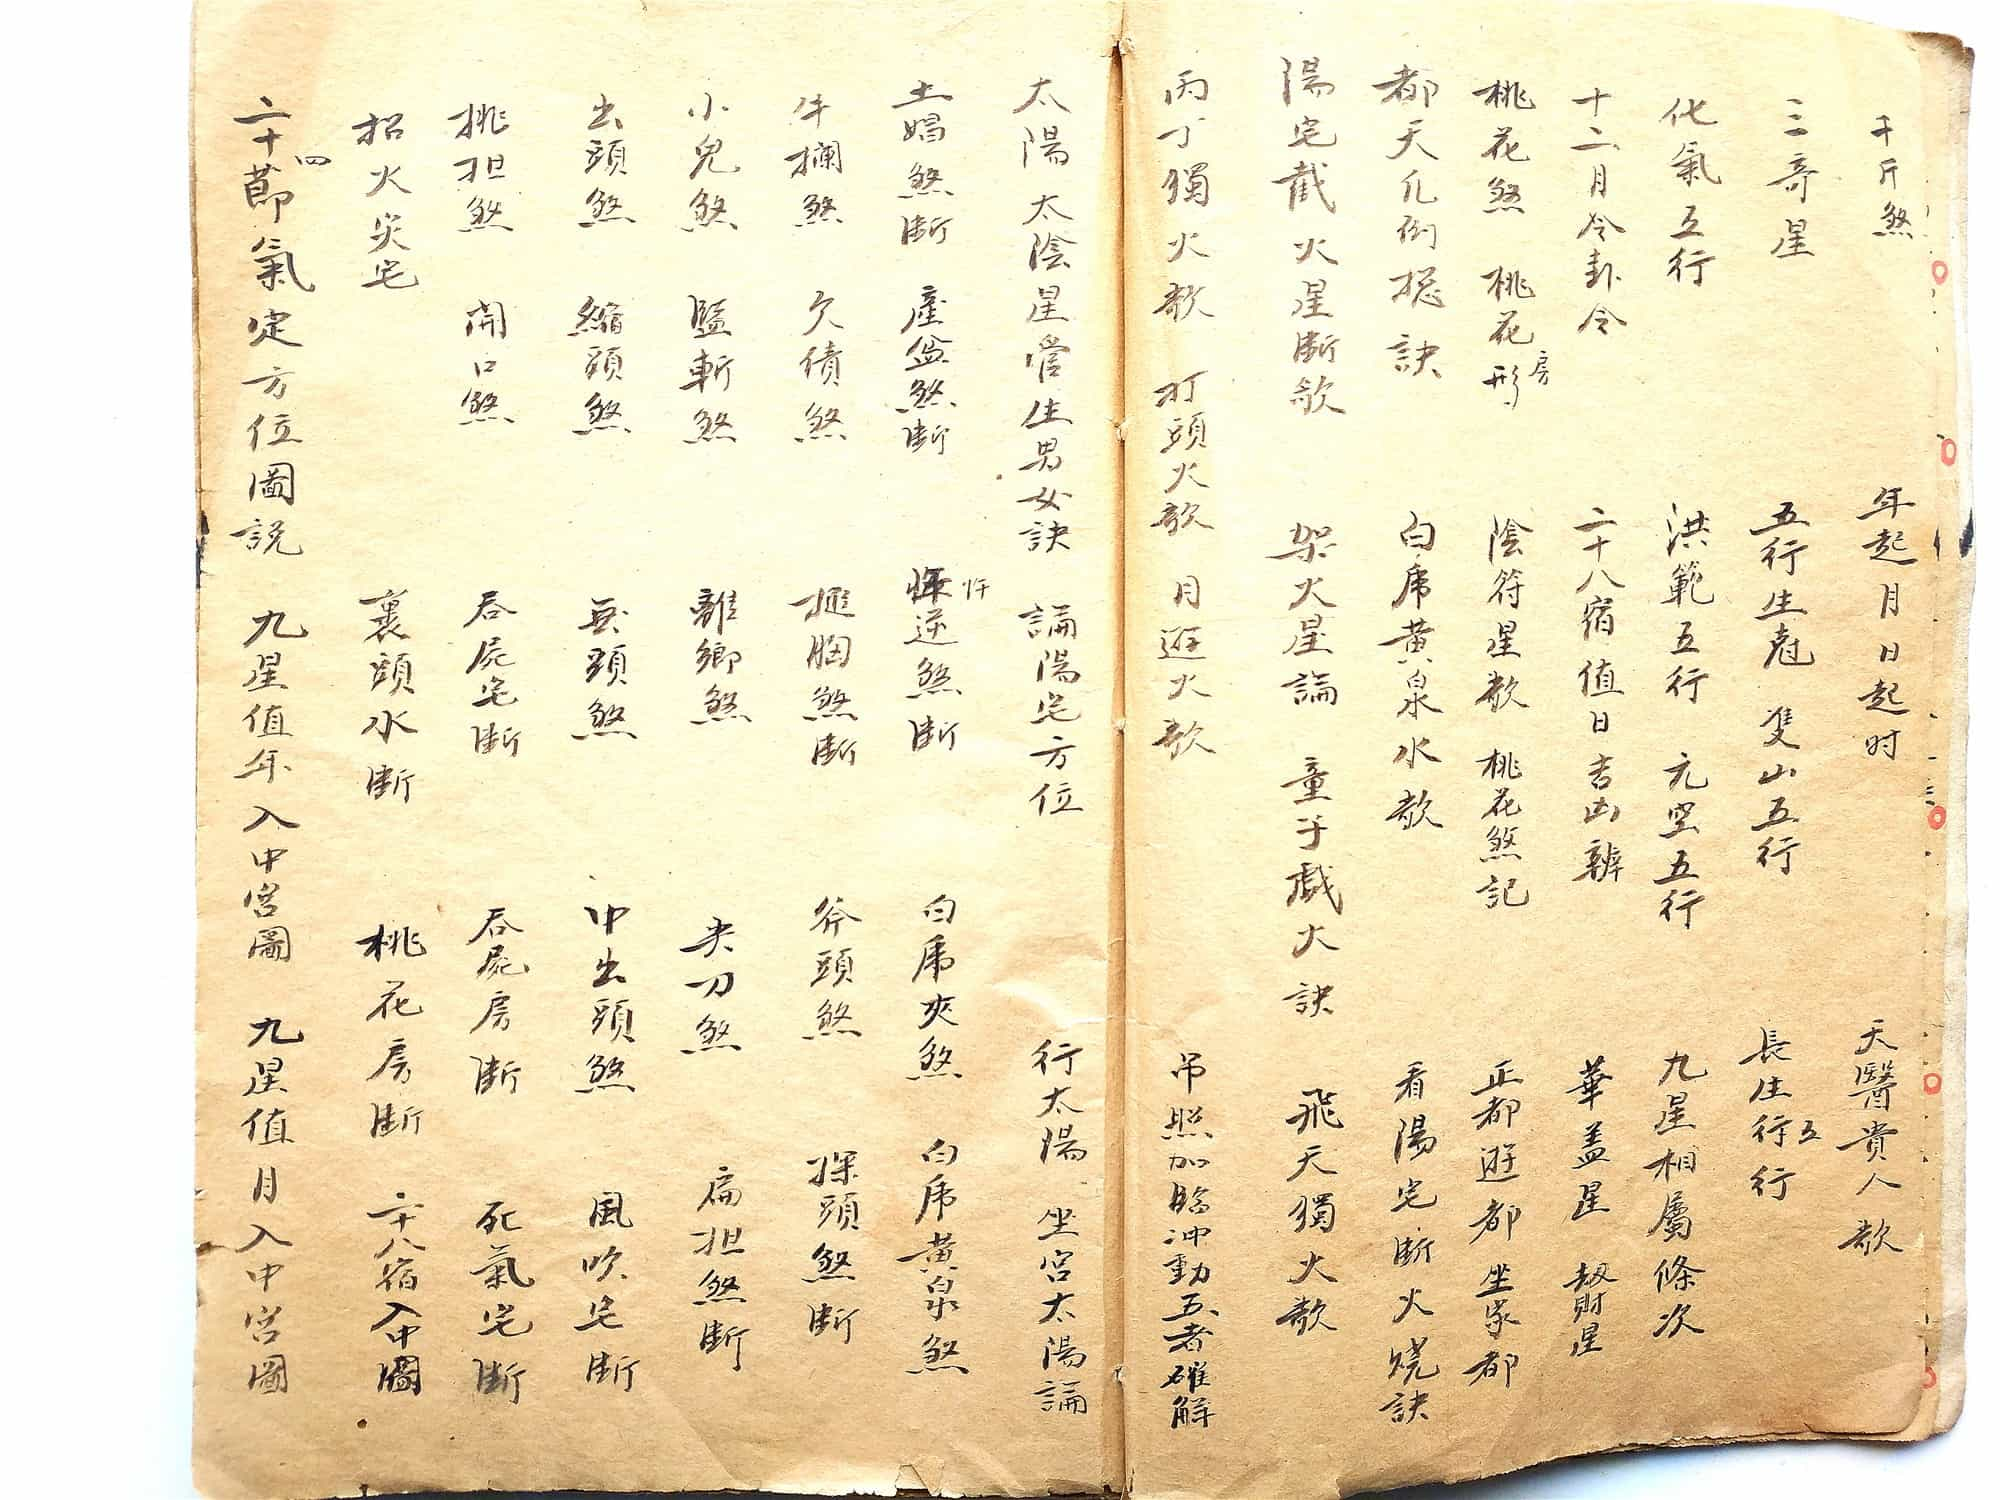 千斤煞 年起月日起时 天醫貴人歌
三奇星 五行生尅 隻山五行 長生五行
化氣五行 洪範五行 元空五行 九星相屬條次
十二月令卦令 二十八宿值日吉凶辨 華盖星 刼財星
桃花煞 桃花房形 陰符星歌 桃花煞記 正都遊都坐家都
都天几例捴訣 白虎黄泉水歌 看陽宅斷火烧訣
陽宅截火星斷歌 架火星論 童子戯火訣 飛天獨火歌
丙丁獨火歌 打頭火歌 月遊火歌 吊照加臨冲動五者確解
太陽太陰星管生男女訣 論陽宅方位 行太陽 坐宮太陽論
土娼煞斷 產盆煞斷 忤逆煞斷 白虎夾煞 白虎黄泉煞
牛攔煞 欠債煞 搥胸煞斷 斧頭煞 探頭煞斷
小兒煞 監斬煞 離鄉煞 夹刀煞 扁担煞斷
出頭煞 縮頭煞 無頭煞 冲出頭煞 風吹宅斷
挑担煞 開口煞 吞屍宅斷 吞屍房斷 死氣宅斷
招火災宅 裏頭水斷 桃花房斷 二十八宿入中圖
二十四節氣定方位圖説 九星值年入中宮圖 九星值月入中宮圖